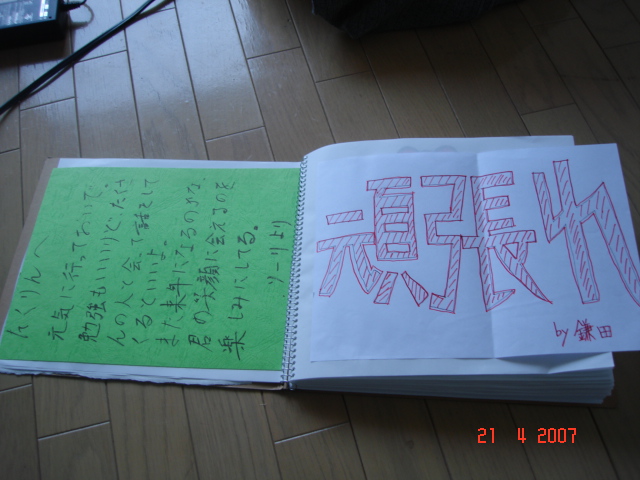 んくりんへ
元気に行っておいで。
勉強もいいけど、たくさ
んの人と会って話をして
くるといいよ。
また来年になるのかな、
君の笑顔に会えるのを
楽しみにしてる。
リーリより
頑張れ
by 鎌田
21 4 2007